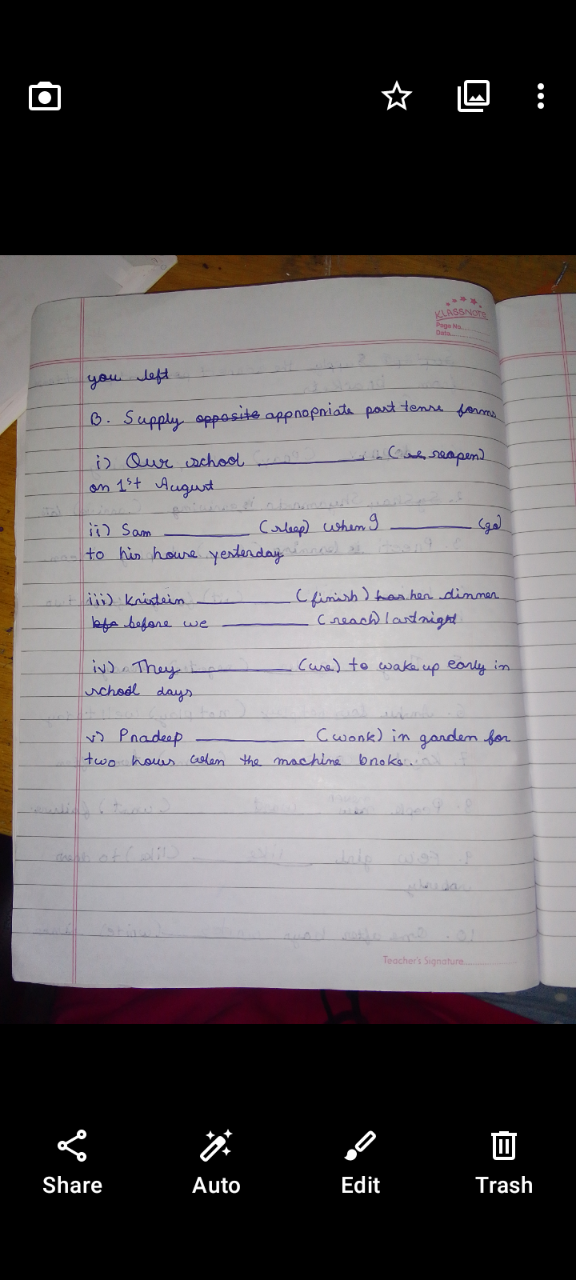 KLASSNOTE
Page No.
Date
you left
B. Supply opposite appropriate past tense forms
i) Our school ________ (re reopen)
on 1st August
ii) Sam ________ (sleep) when I ________ (go)
to his house yesterday
iii) Kristein ________ (finish) has her dinner
bfe before we ________ (reach) last night
iv) They ________ (use) to wake up early in
school days
v) Pradeep ________ (work) in garden for
two hours when the machine broke.
Teacher's Signature
Share
Auto
Edit
Trash